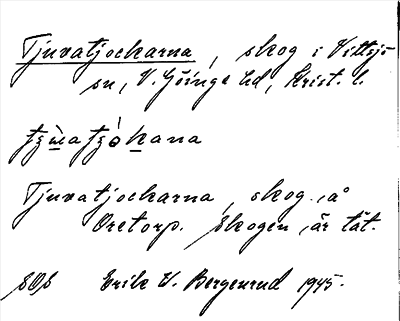 Tjuvatjockarna, skog i Vittsjö
sn, V. Göinge hd, Krist. l.
Tjuvatjockarna, skog å
Oretorp. Skogen är tät.
SOS Erik W. Bergenrud 1945.